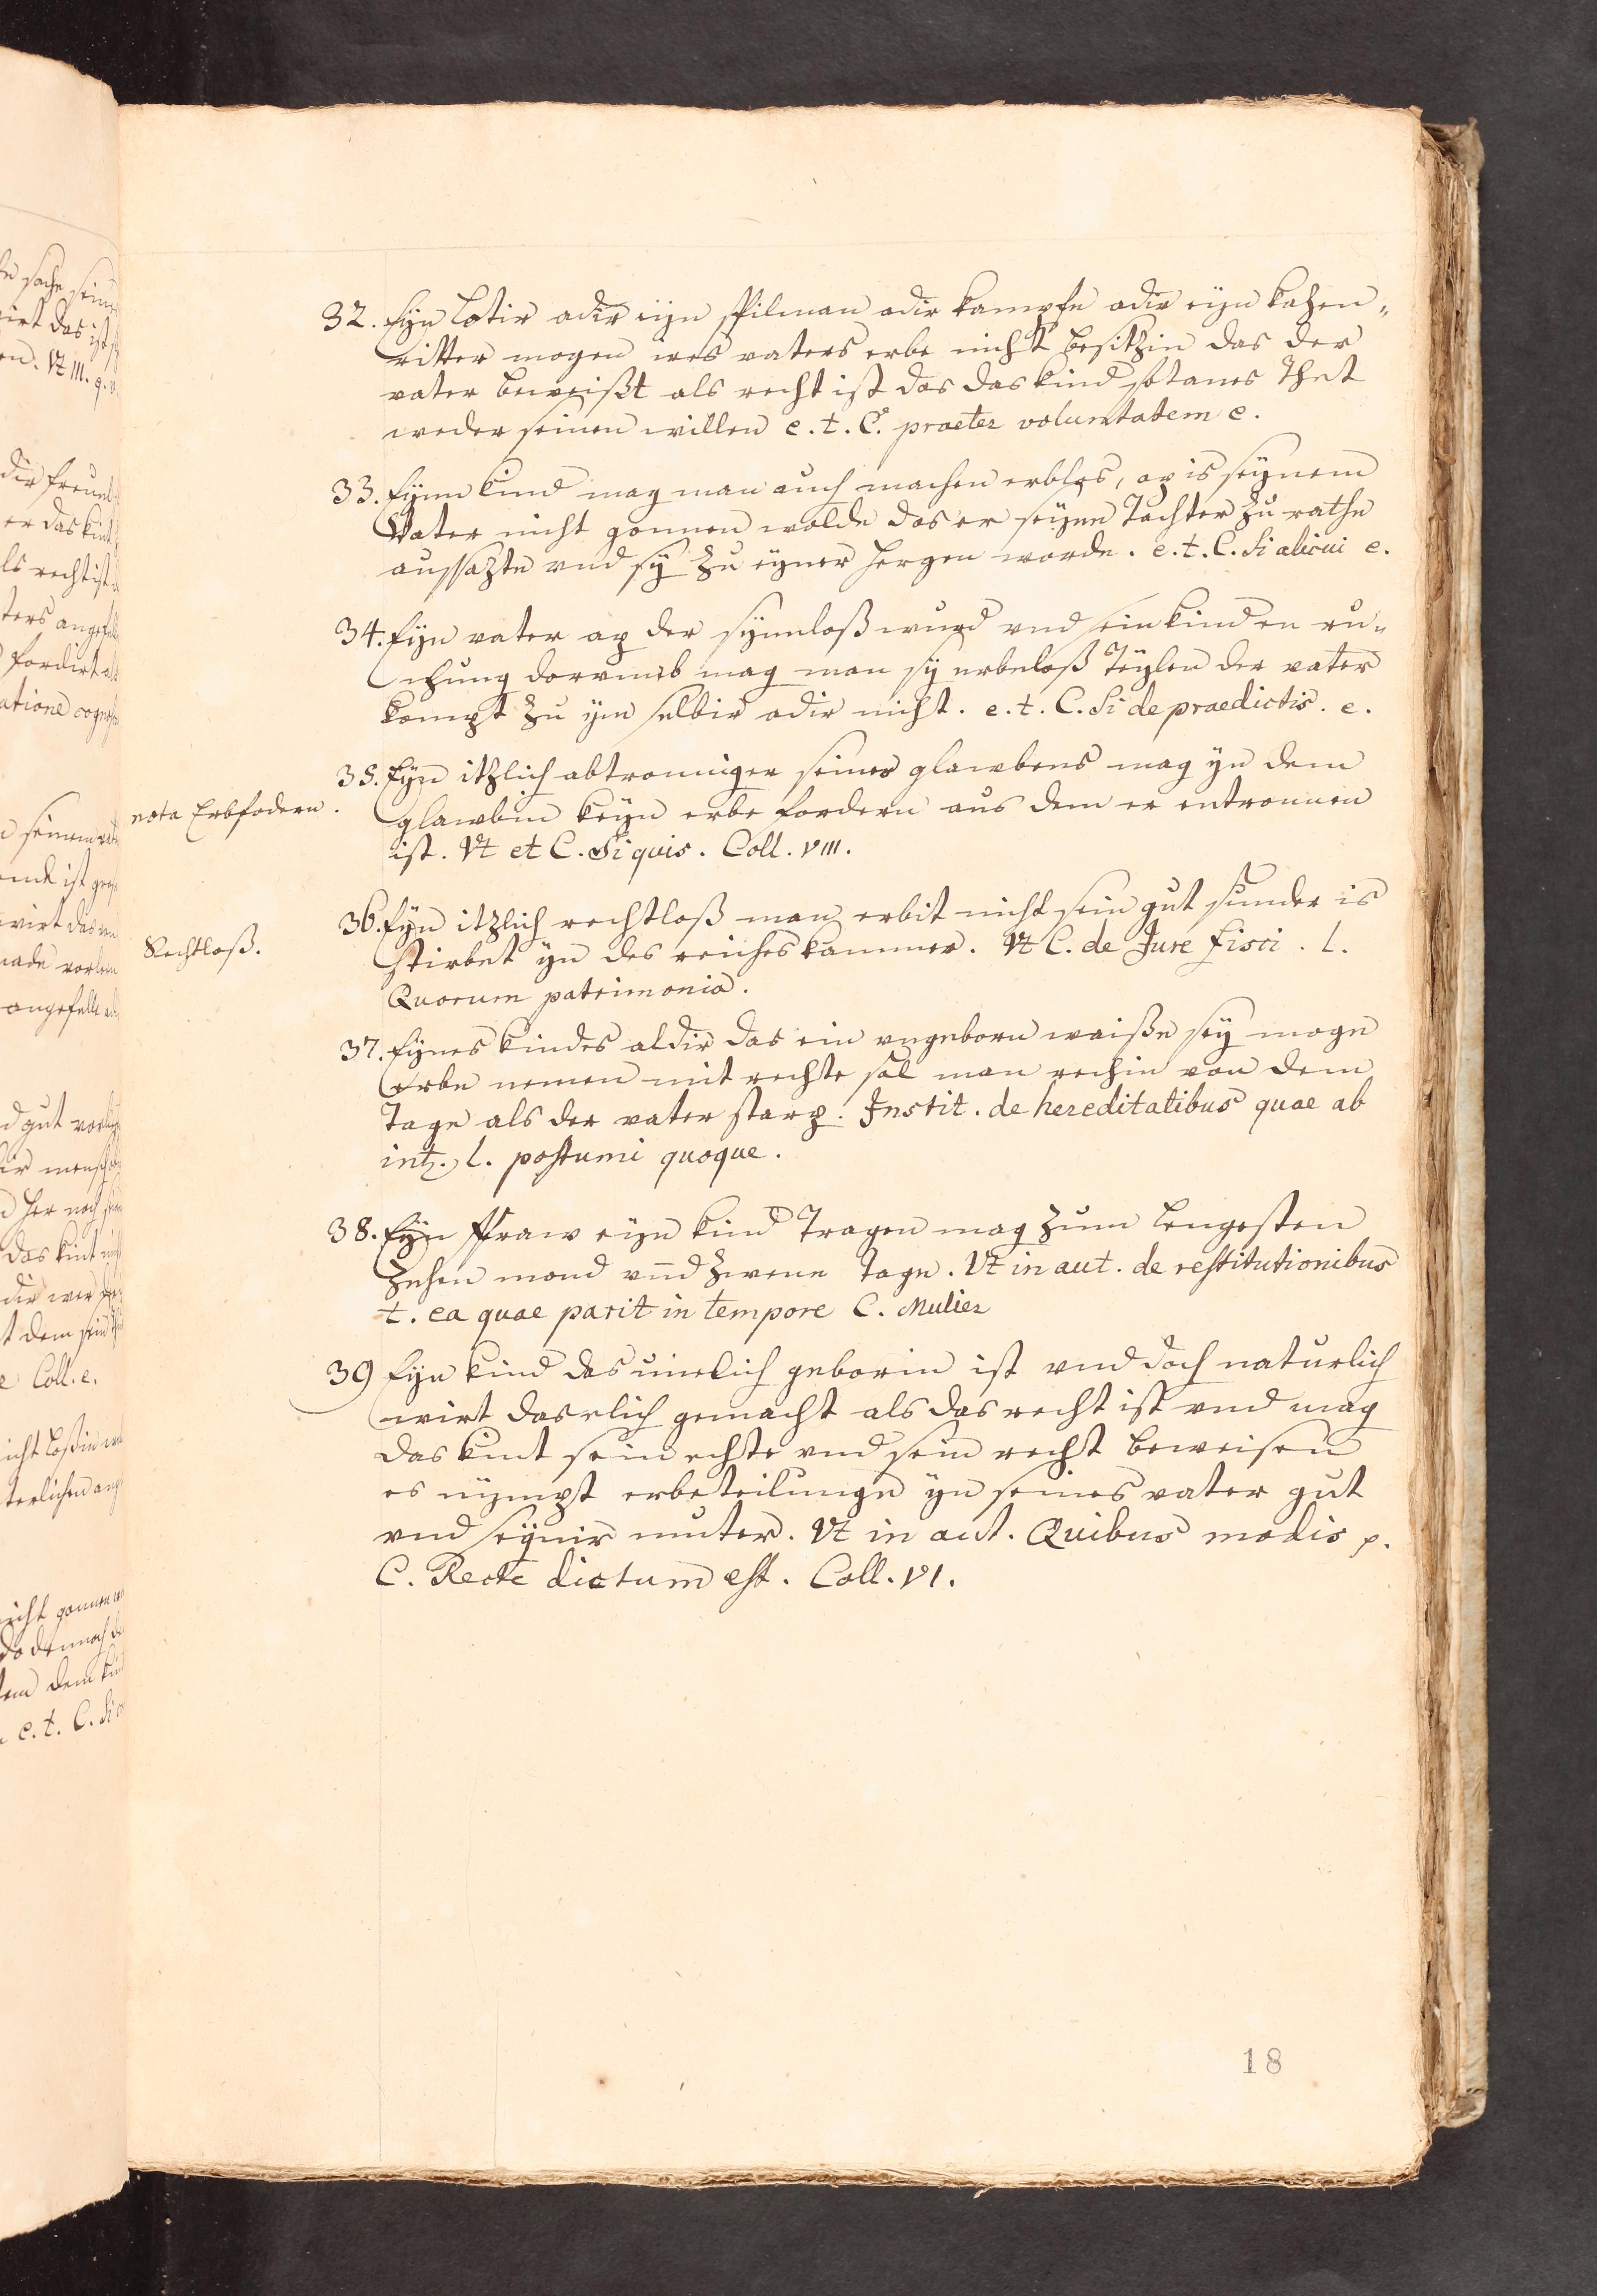 32. Eyn Lotir adir eyn spilman adir kampfe adir eyn kaczen-
ritter mogen ires vaters erbe nicht besitzin das der
vater beweißt als recht ist das das kind sotanes Thet
weder seinen willen e. t. C. praeter voluntatem e.
33. Eynn kind mag man auch machen erblos, ap is seynem
Vater nicht gonnen wolde das er seyne Tochter zu rathe
aussazte vnd sy zu eyner hergen worde. e. t. C. Si alicui e.
34. Eyn vater ap der synnloß wurd vnd sein kind en ru-
chung dorvmb mag man sy erbeloß Teylen der vater
kompt zu ym selbir adir nicht. e. t. C. Si de praedictis. e.
35. Eyn itzlich abtronniger seines glawbens mag yn dem
nota Erbfodern.
glawbin keyn erbe fordern aus dem er entronnen
ist. Vt et C. Si quis. Coll. VIII.
36. Eyn itzlich rechtloß man erbit nicht sein gut sunder is
Rechtloß.
stirbet yn des reiches kammer. Vt C. de Jure fisci. l.
Quorum patrimonia.
37. Eynes kindes aldir das ein vngeborn waiße sey moge
erbe nemen mit rechte sal man rechin von dem
Tage als der vater starp. Instit. de hereditatibus quae ab
int. l. postumi quoque.
38. Eyn ffraw eyn kind Tragen mag zum lengesten
Zehen mond vnd zwene Tage. Vt in aut. de restitutionibus
t. ea quae parit in tempore C. Mulier
39 Eyn kind das unelich geborin ist vnd doch naturlich
wirt das elich gemacht als das recht ist vnd mag
das kint sein echte vnd sein recht beweisen
es nympt erbeteilunge yn seines vater gut
vnd seynir muter. Vt in aut. Quibus modis p.
C. Recte dictum est. Coll. VI.
18